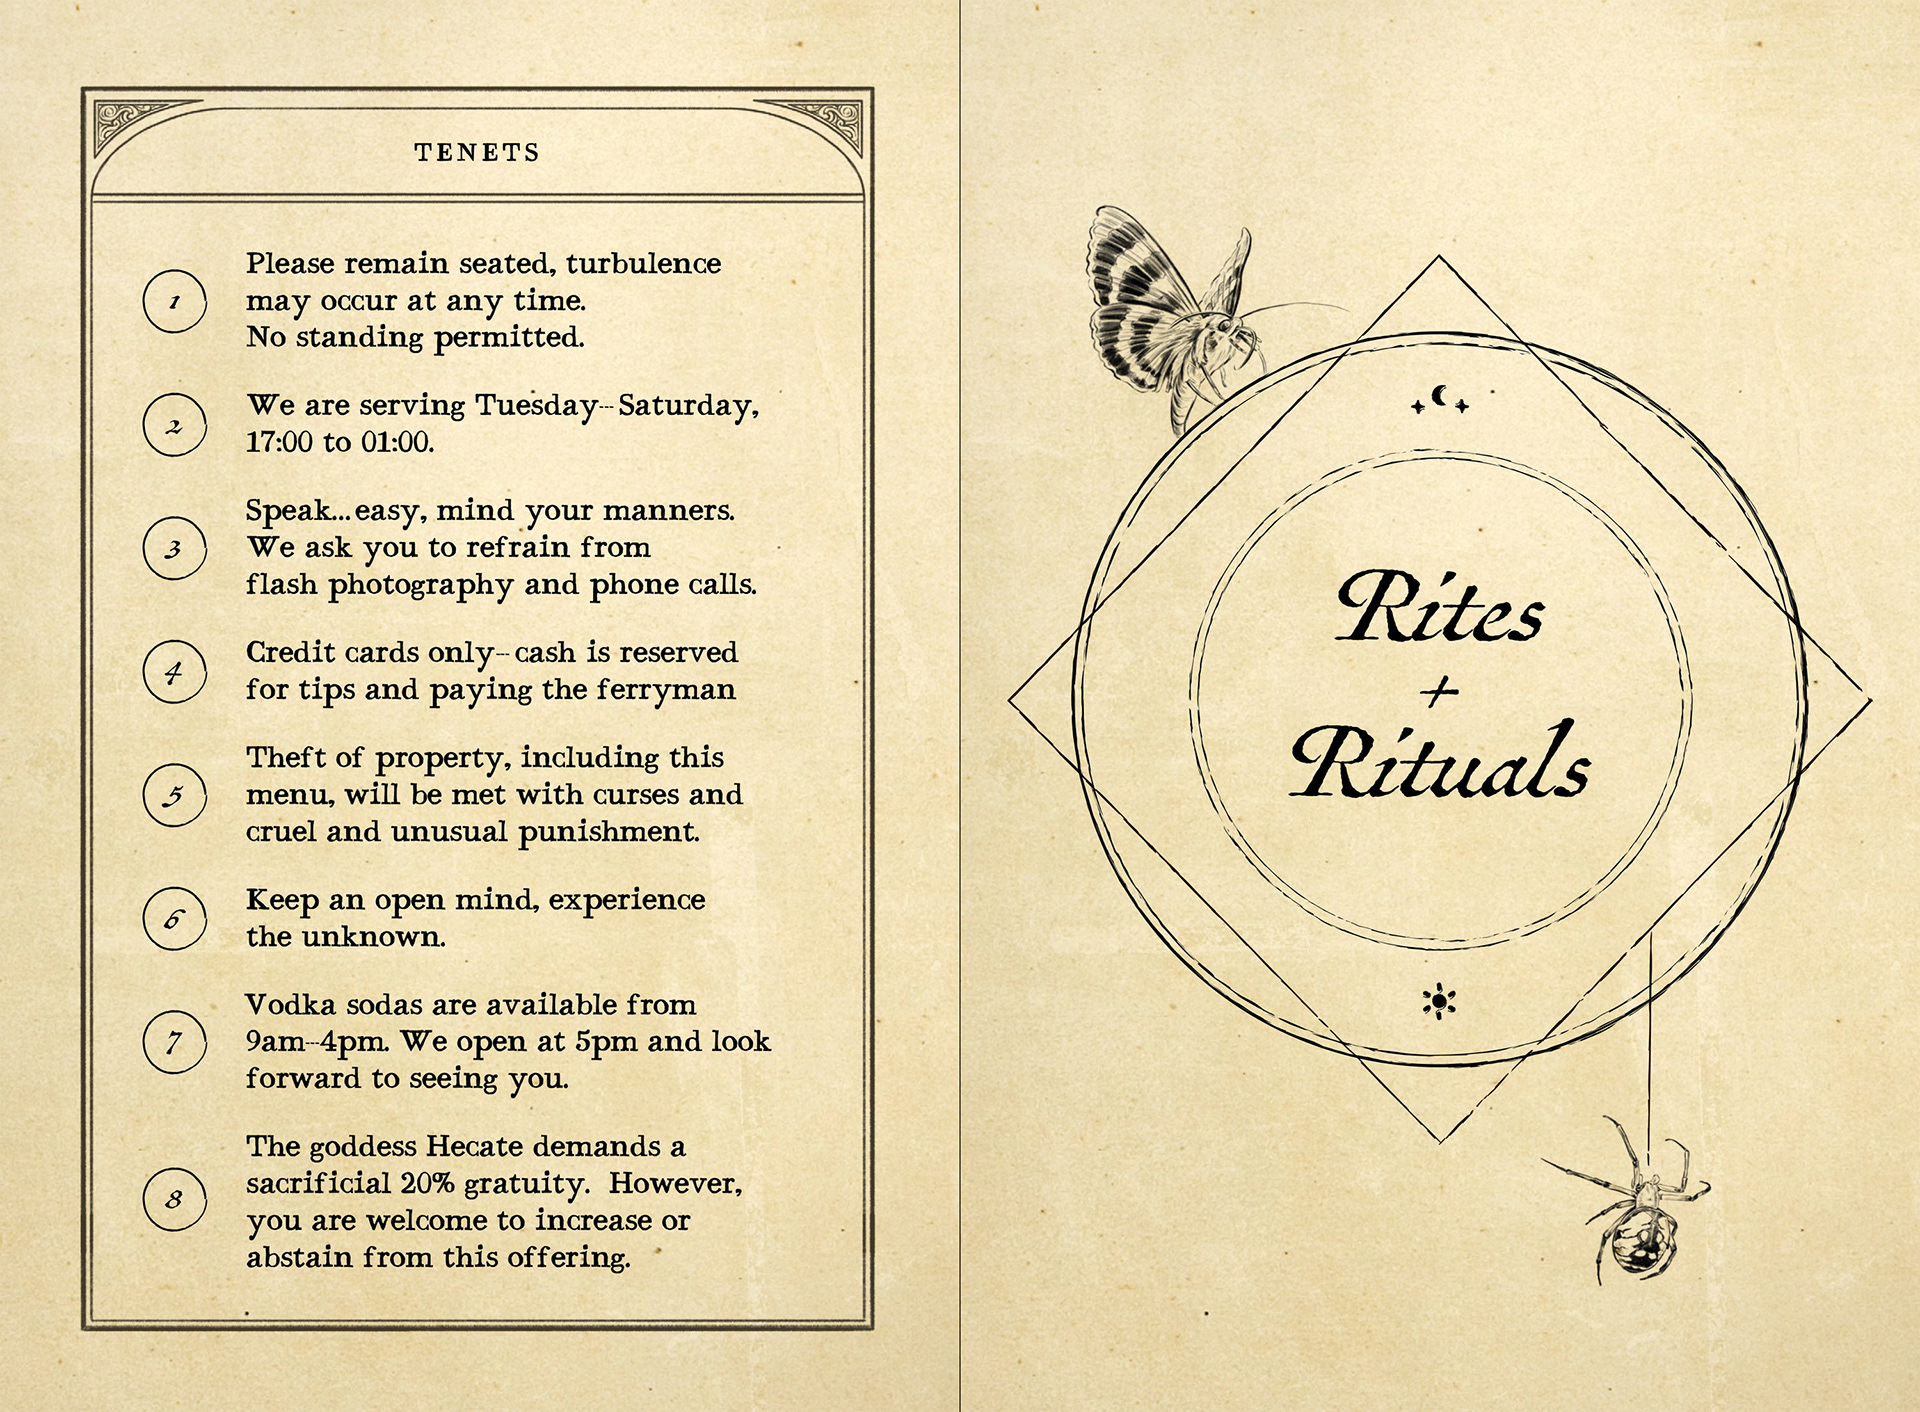 TENETS
1
Please remain seated, turbulence
may occur at any time.
No standing permitted.
2
We are serving Tuesday--Saturday,
17:00 to 01:00.
3
Speak...easy, mind your manners.
We ask you to refrain from
flash photography and phone calls.
4
Credit cards only--cash is reserved
for tips and paying the ferryman
5
Theft of property, including this
menu, will be met with curses and
cruel and unusual punishment.
6
Keep an open mind, experience
the unknown.
7
Vodka sodas are available from
9am--4pm. We open at 5pm and look
forward to seeing you.
8
The goddess Hecate demands a
sacrificial 20% gratuity.  However,
you are welcome to increase or
abstain from this offering.
Rites
+
Rituals